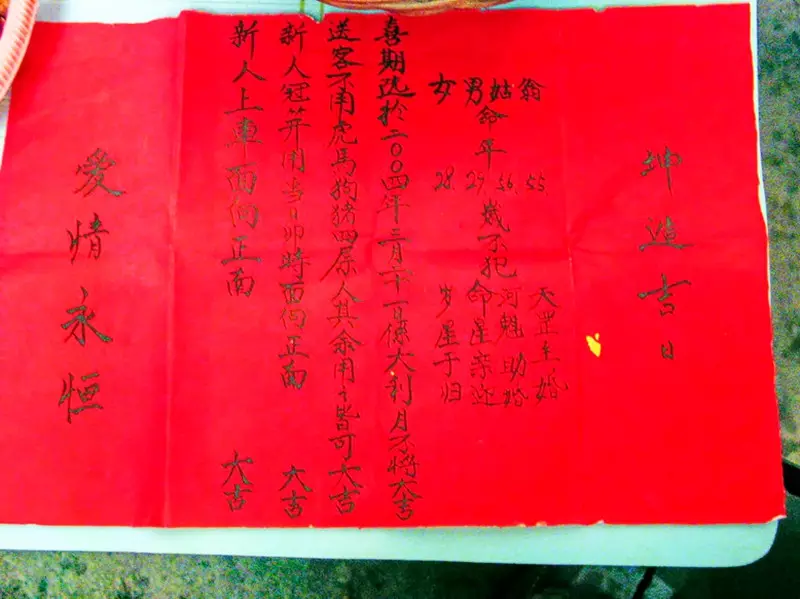 坤造吉日
翁 55. 天罡主婚
姑 56. 河魁助婚
命年 歲不犯
男 29. 命星亲迎
女 28. 岁星于归
喜期选於二00四年三月二十一日係大利月不將大吉
送客不用虎馬狗猪四属人其余用之皆可大吉
新人冠笄用当日卯時面向正面 大吉
新人上車面向正面 大吉
愛情永恒